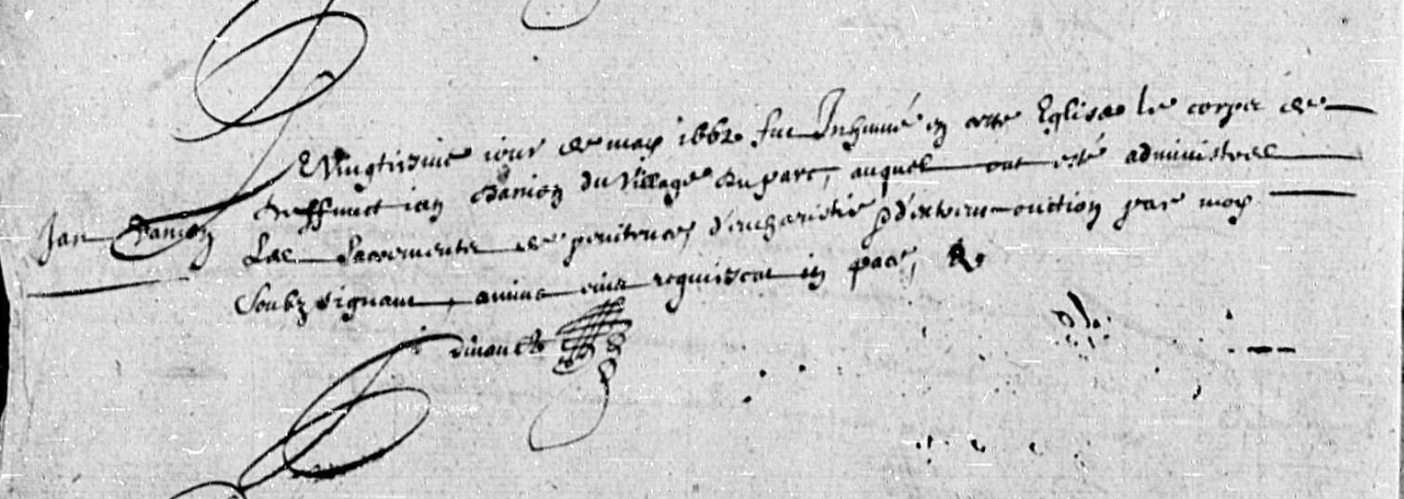 Le Vingtiesme iour de may 1662 fut Inhumé en cette Eglise le corps de
Jan Danion
deffunct ian Danion du Village du parc, auquel ont esté administrés
Les Sacrements de penitence, d'eucharistie et d'extreme onction par moy
Soubz signant, anima eius requiescat in pace,